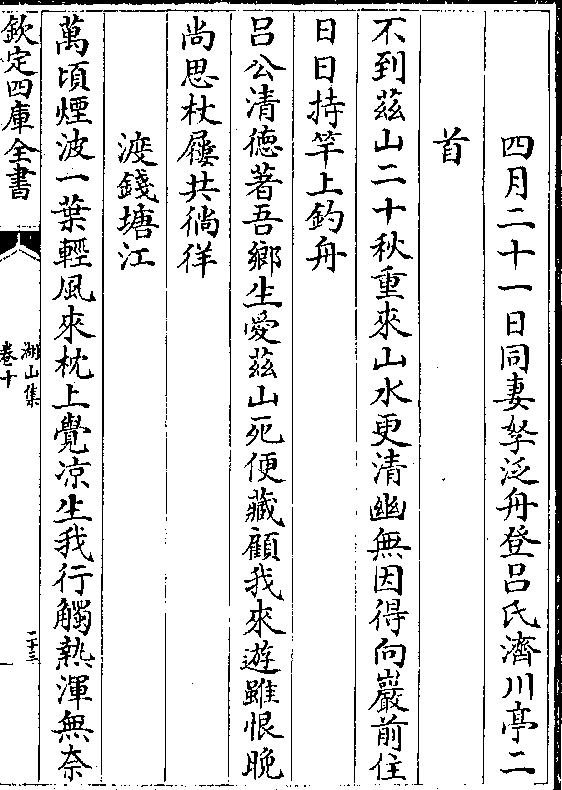 四月二十一日同妻孥泛舟登吕氏濟川亭二
首
不到茲山二十秋重來山水更清幽無因得向巖前住
日日持竿上釣舟
吕公清德著吾鄉生愛茲山死便藏顧我來遊雖恨晚
尚思杖屨共徜徉
渡錢塘江
萬頃煙波一葉輕風來枕上覺凉生我行觸熱渾無奈
欽定四庫全書
湖山集
卷十
二十三